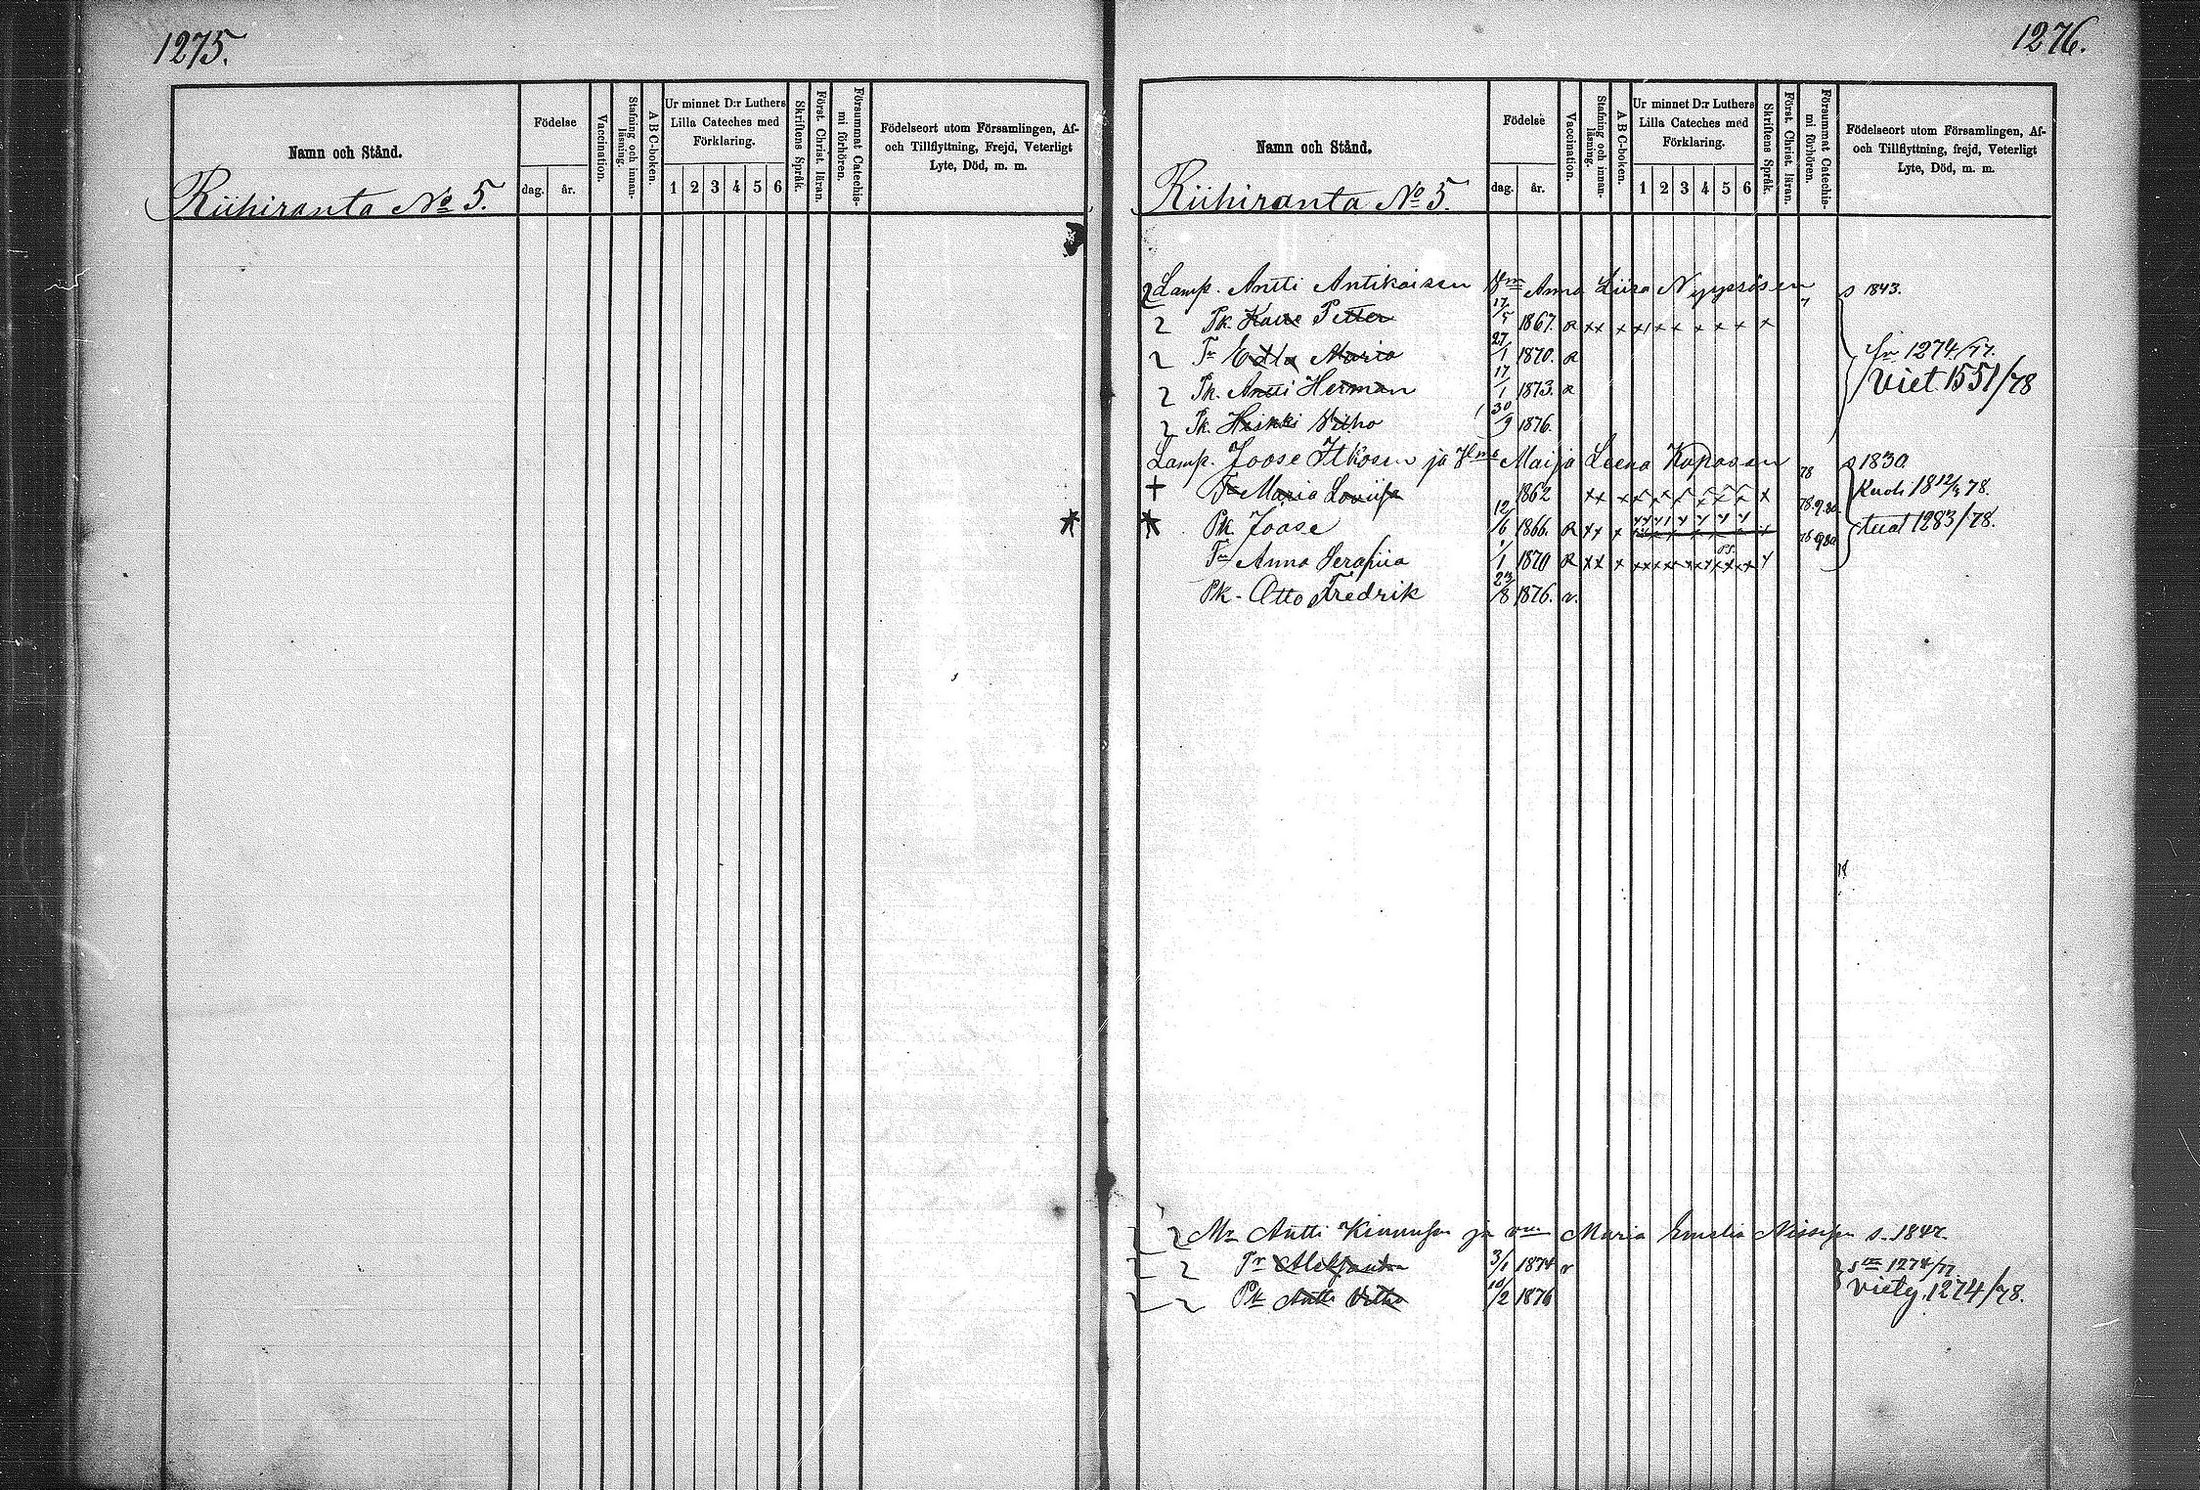 1275.
Namn och Stånd.
Födelse
dag.
år.
Vaccination.
Stafning och innan-
läsning.
ABC-boken.
Ur minnet D:r Luthers
Lilla Cateches med
Förklaring.
1 2 3 4 5 6
Skriftens Språk.
Först. Christ. läran.
Försummat Catechis-
mi förhören.
Födelseort utom Församlingen, Af-
och Tillflyttning, Frejd, Veterligt
Lyte, Död, m. m.
Riihiranta No 5.
1276.
Namn och Stånd.
Födelse
dag.
år.
Vaccination.
Stafning och innan-
läsning.
ABC-boken.
Ur minnet D:r Luthers
Lilla Cateches med
Förklaring.
1 2 3 4 5 6
Skriftens Språk.
Först. Christ. läran.
Försummat Catechis-
mi förhören.
Födelseort utom Församlingen, Af-
och Tillflyttning, frejd, Veterligt
Lyte, Död, m. m.
Riihiranta No 5.
Lamp. Antti Antikaisen Anna Liisa s 1843.
Pk. Petter 17/5 1867.
Tr Edla Maria 27/1 1870. 1274/77.
Pk. Antti Herman 17/1 1873. Viet 1551/78
Pk. Heikki Wilho 30/9 1876.
Lamp. Joose Itkosen ja Maija Leena 78 s 1830
Tr Maria Loviisa 1862 Kuoli 18 12/4 78.
Pk. Joose 12/6 1866. 1283/78.
Tr Anna Serafiia 1/1 1870
Pk. Otto Fredrik 23/8 1876. v.
Antti Kinnusen ja Maria Emelia Nissisen s. 1847
Tr Aleksantra 3/1 1874 v 1274/77
Pk Antti Wilho 10/2 1876 1274/78.